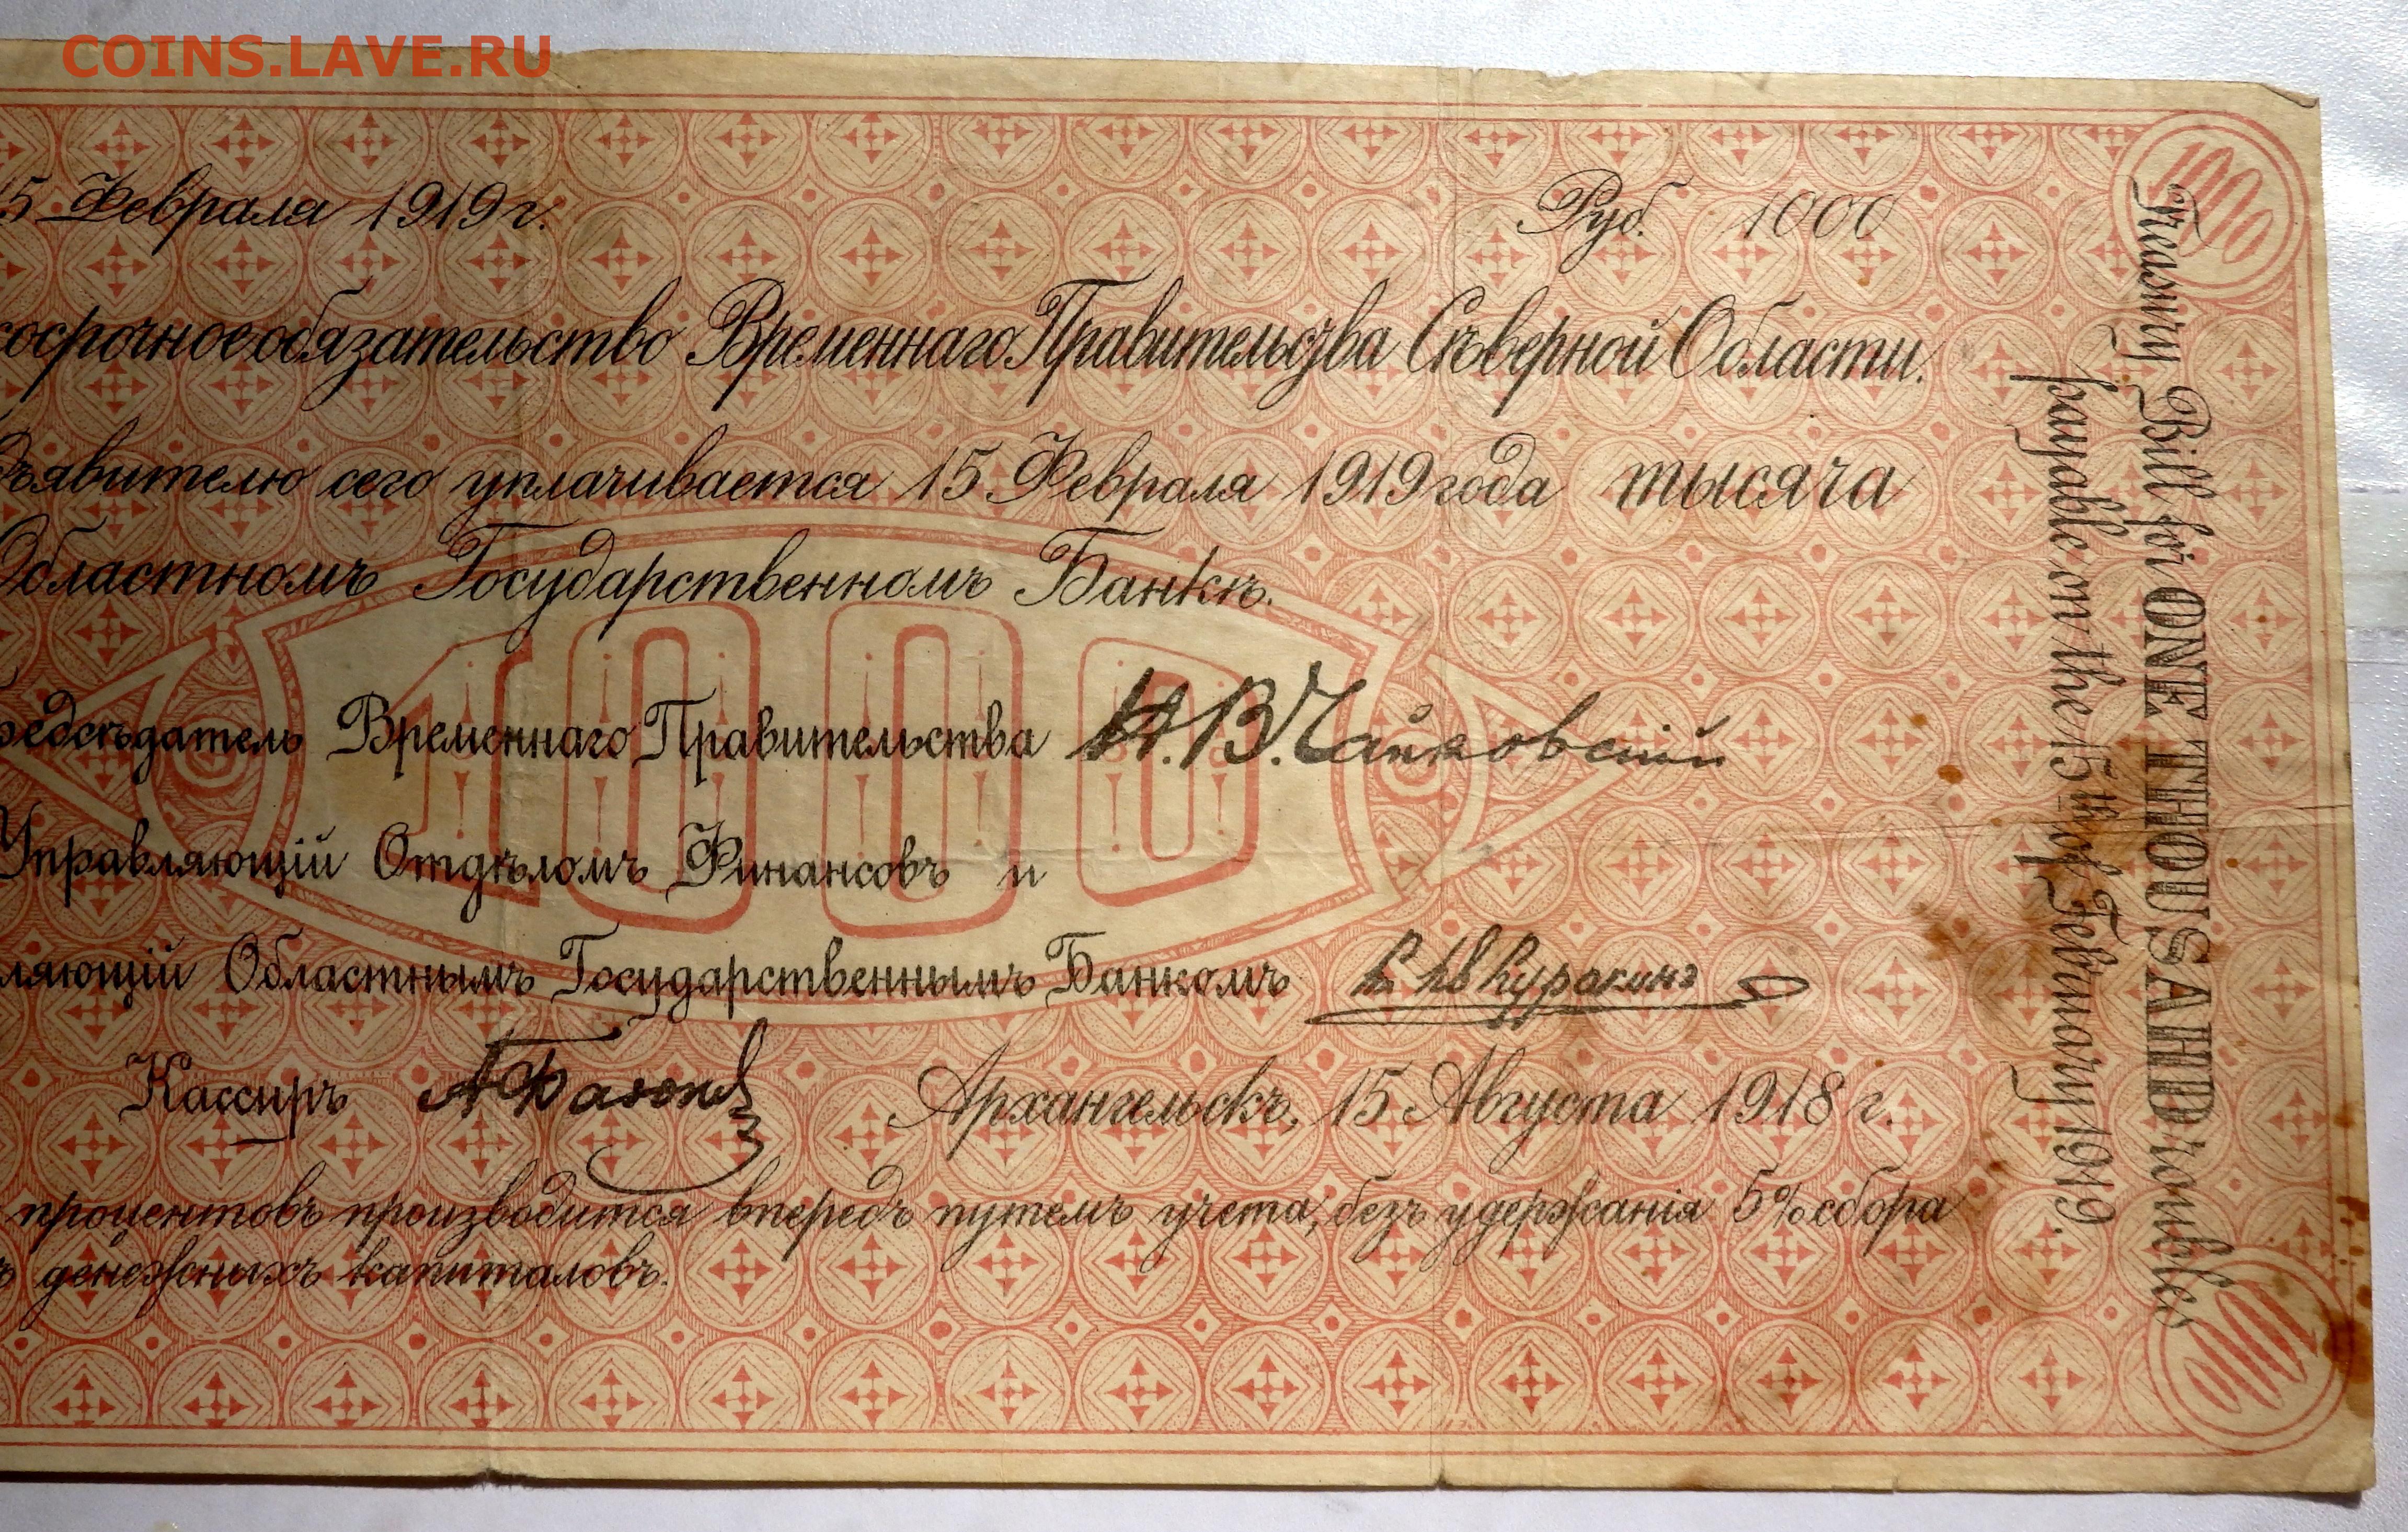 COINS.LAVE.RU
15 Февраля 1919 г. Руб. 1000
косрочное обязательство Временнаго Правительства Сѣверной Области.
дъявителю сего уплачивается 15 Февраля 1919 года тысяча
Областномъ Государственномъ Банкѣ.
1000
редсѣдатель Временнаго Правительства Н. В. Чайковскій
Управляющій Отдѣломъ Финансовъ и
ляющій Областнымъ Государственнымъ Банкомъ Куракинъ
Кассиръ
Архангельскъ, 15 Августа 1918 г.
процентовъ производится впередъ путемъ учета, безъ удержанія 5% сбора
ъ денежныхъ капиталовъ.
Treasury Bill for ONE THOUSAND roubles
payable on the 15th of February 1919.
1000
1000